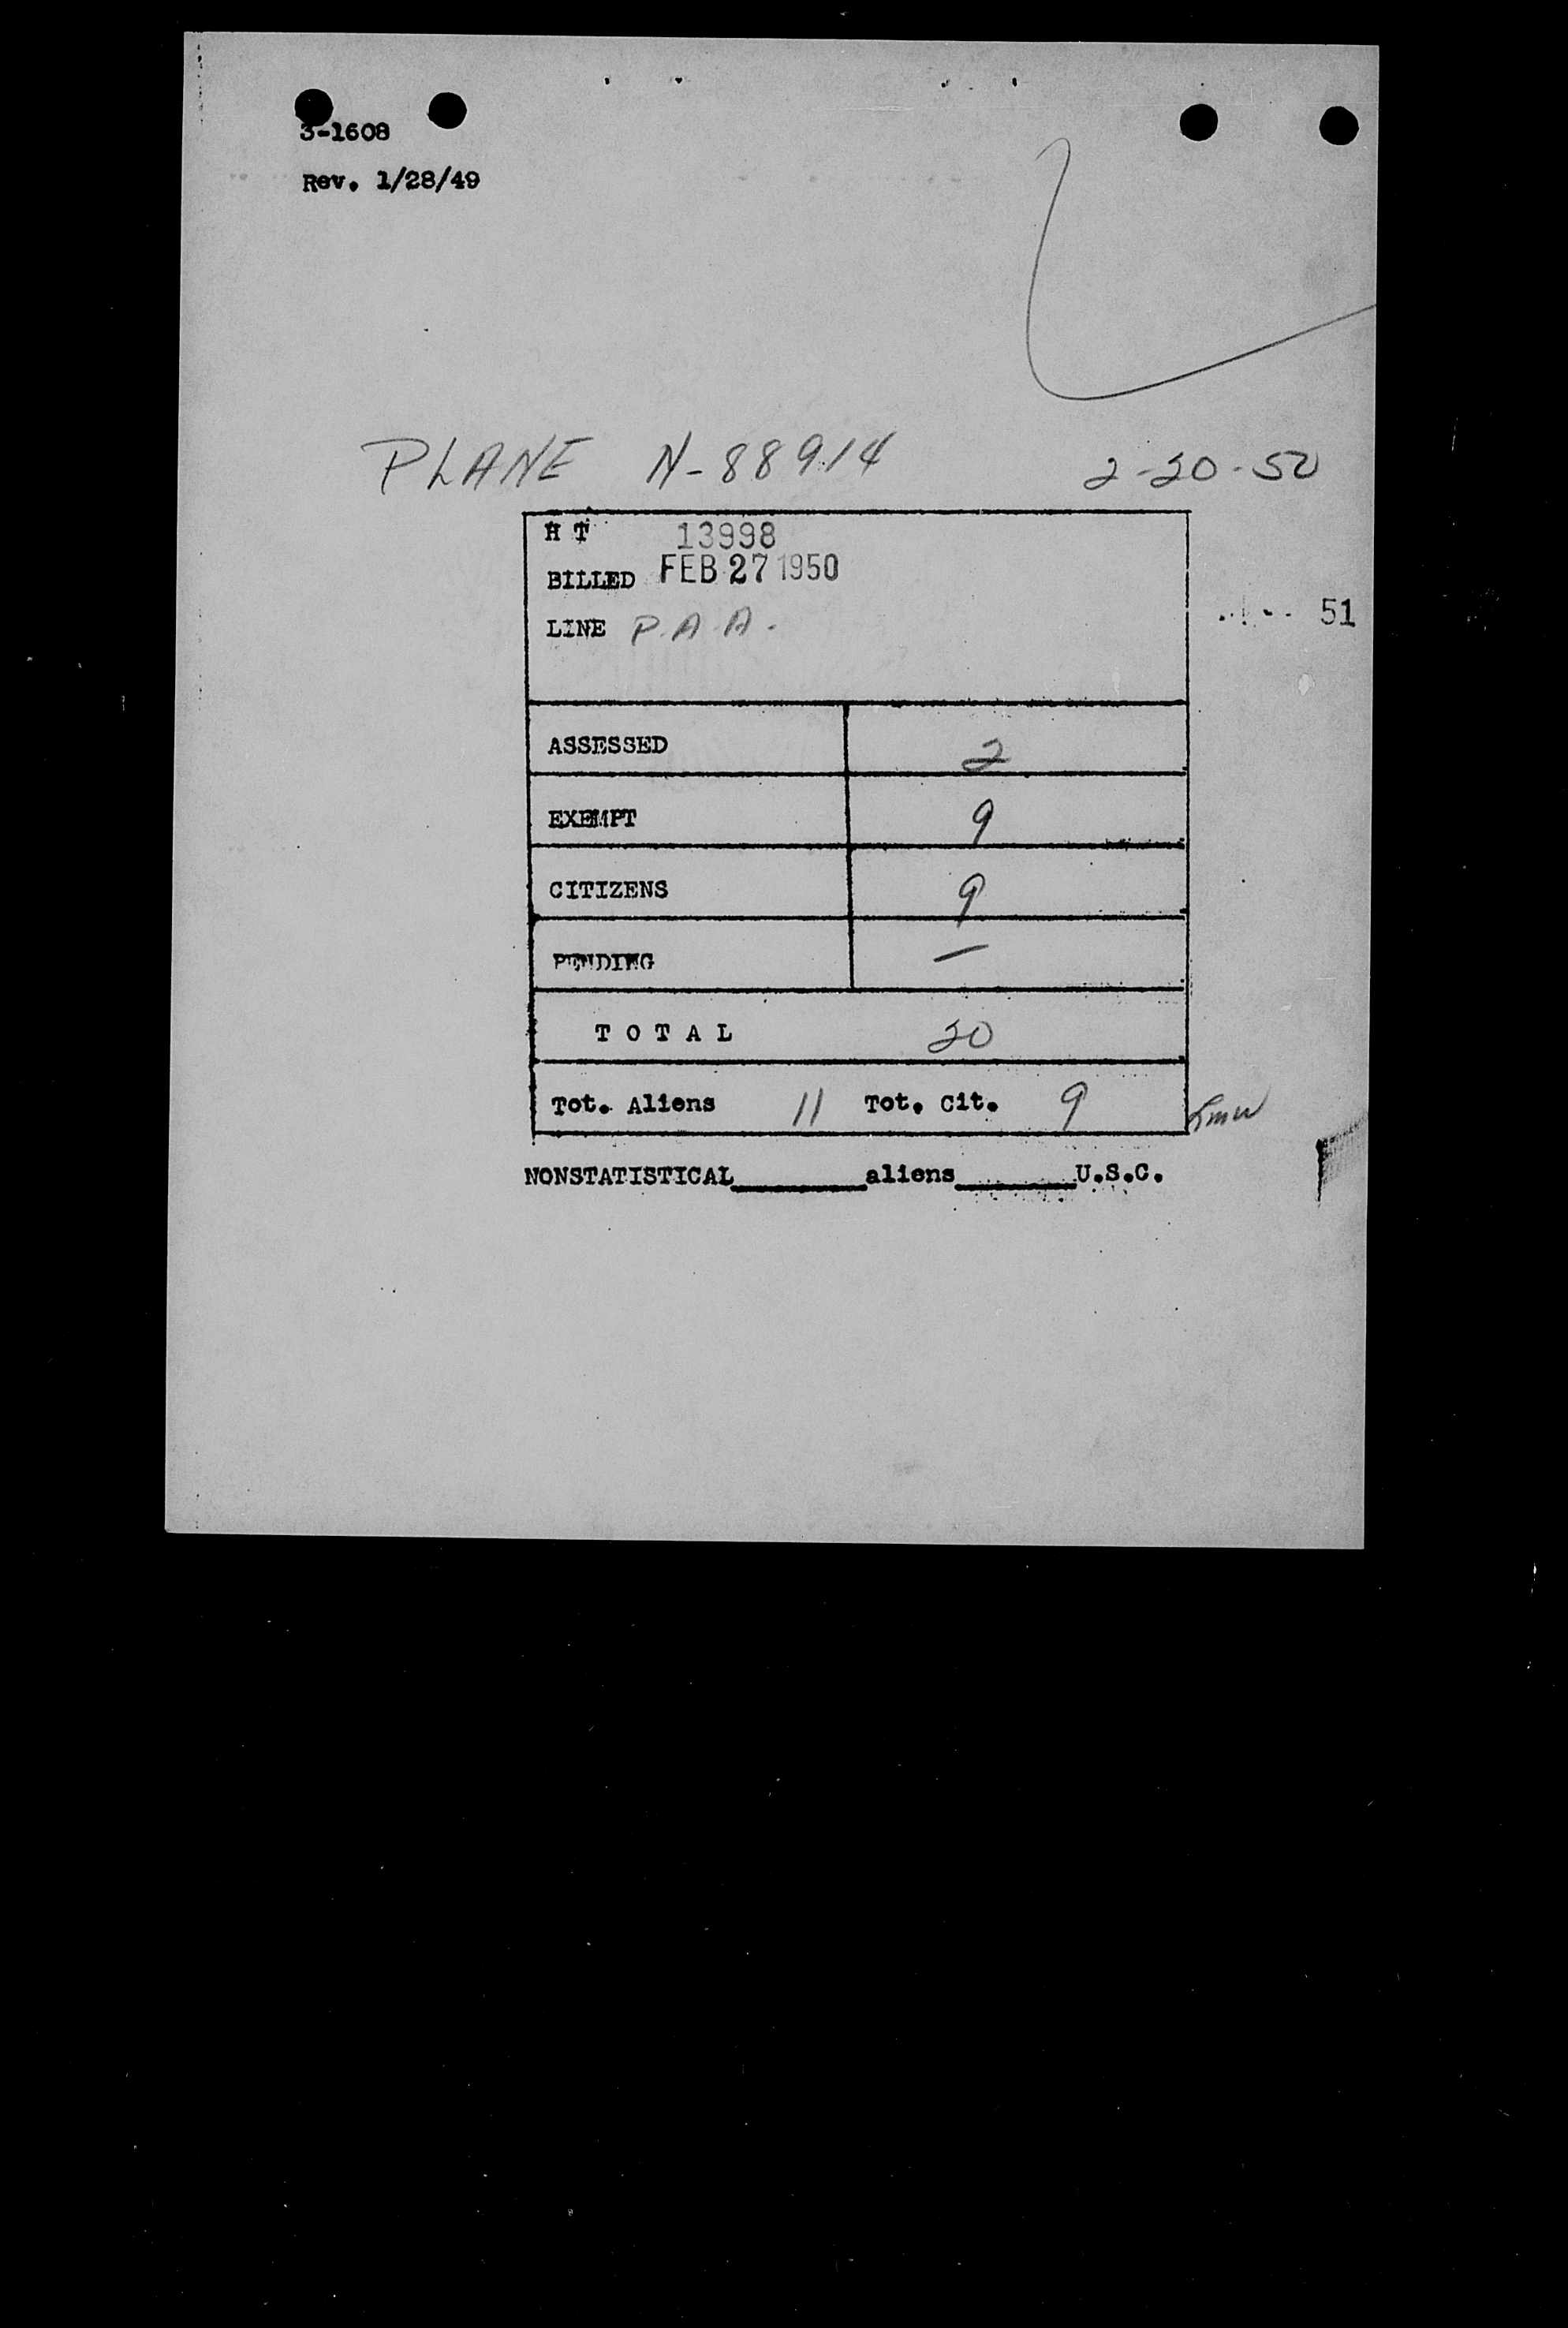 3-1608
Rev. 1/28/49
PLANE N-88914 2-20-50
H T 13998
BILLED FEB 27 1950
LINE P.A.A.
51
ASSESSED 2
EXEMPT 9
CITIZENS 9
PENDING —
TOTAL 20
Tot. Aliens 11 Tot. Cit. 9
NONSTATISTICAL________aliens________U.S.C.